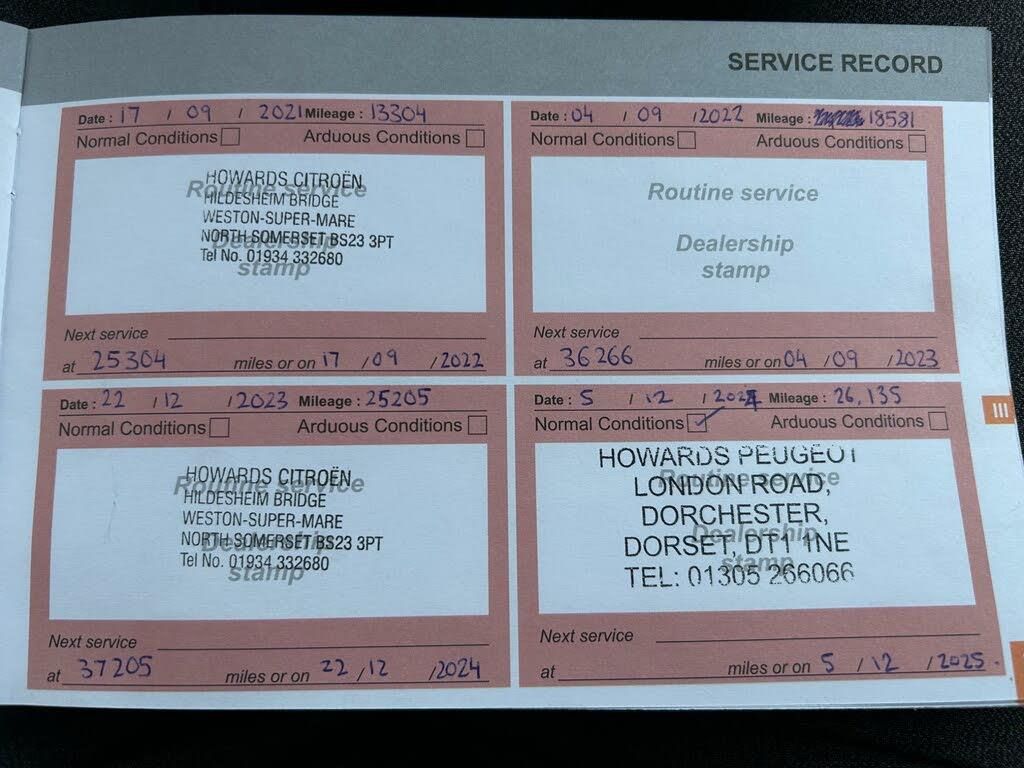 SERVICE RECORD
Date : 17 / 09 / 2021 Mileage : 13304
Normal Conditions Arduous Conditions
Routine service
HOWARDS CITROËN
HILDESHEIM BRIDGE
WESTON-SUPER-MARE
NORTH SOMERSET BS23 3PT
Tel No. 01934 332680
Dealership
stamp
Next service
at 25304 miles or on 17 / 09 / 2022
Date : 04 / 09 / 2022 Mileage : 18581
Normal Conditions Arduous Conditions
Routine service
Dealership
stamp
Next service
at 36266 miles or on 04 / 09 / 2023
Date : 22 / 12 / 2023 Mileage : 25205
Normal Conditions Arduous Conditions
Routine service
HOWARDS CITROËN
HILDESHEIM BRIDGE
WESTON-SUPER-MARE
NORTH SOMERSET BS23 3PT
Tel No. 01934 332680
Dealership
stamp
Next service
at 37205 miles or on 22 / 12 / 2024
Date : 5 / 12 / 2024 Mileage : 26,135
Normal Conditions ✓ Arduous Conditions
Routine service
HOWARDS PEUGEOT
LONDON ROAD,
DORCHESTER,
DORSET, DT1 1NE
TEL: 01305 266066
Dealership
stamp
Next service
at miles or on 5 / 12 / 2025.
III